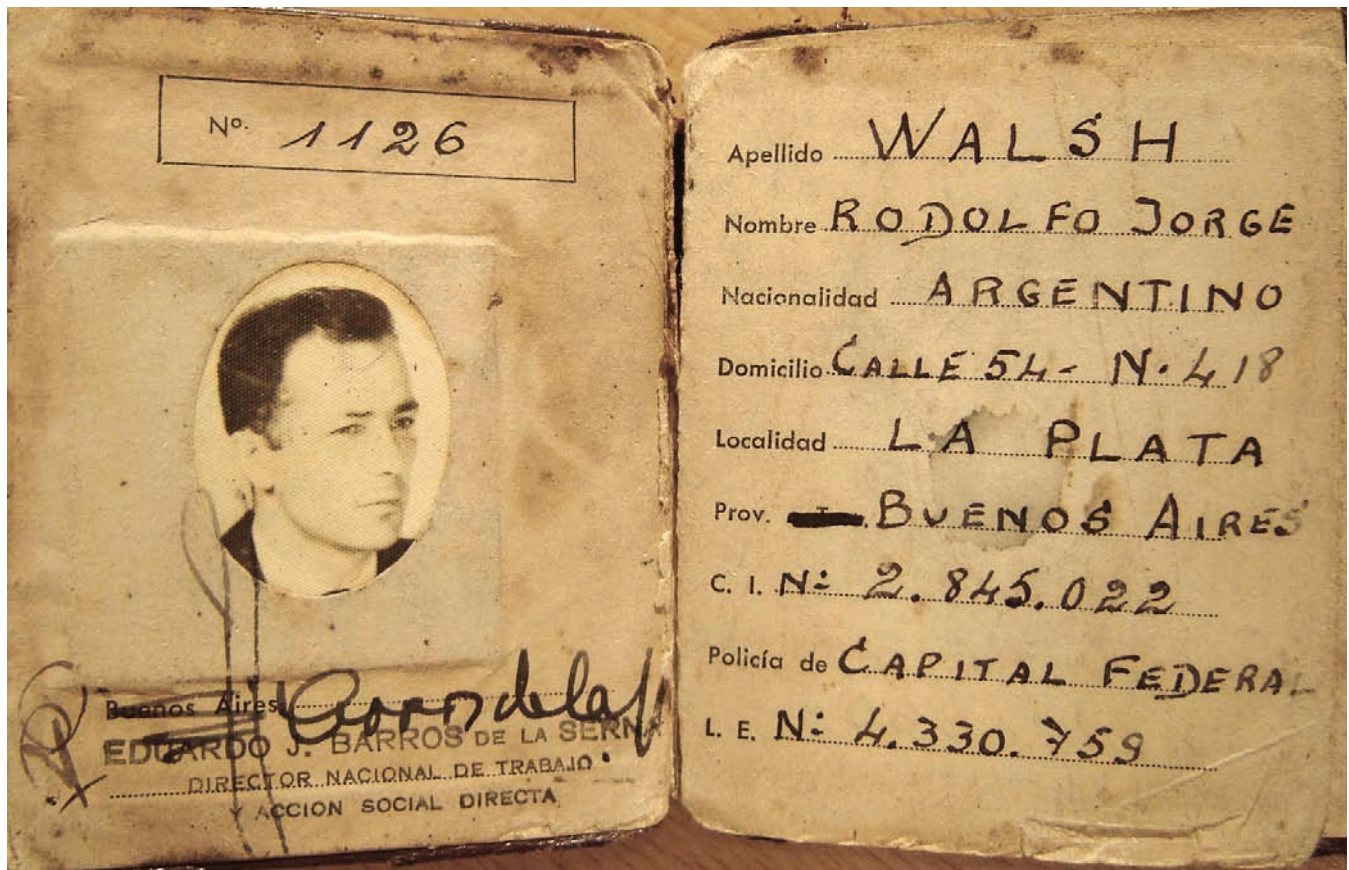 Nº. 1126
Buenos Aires,
EDUARDO J. BARROS DE LA SERNA
DIRECTOR NACIONAL DE TRABAJO
Y ACCION SOCIAL DIRECTA
Apellido WALSH
Nombre RODOLFO JORGE
Nacionalidad ARGENTINO
Domicilio CALLE 54 - N. 418
Localidad LA PLATA
Prov. BUENOS AIRES
C. I. Nº 2.845.022
Policía de CAPITAL FEDERAL
L. E. Nº 4.330.759